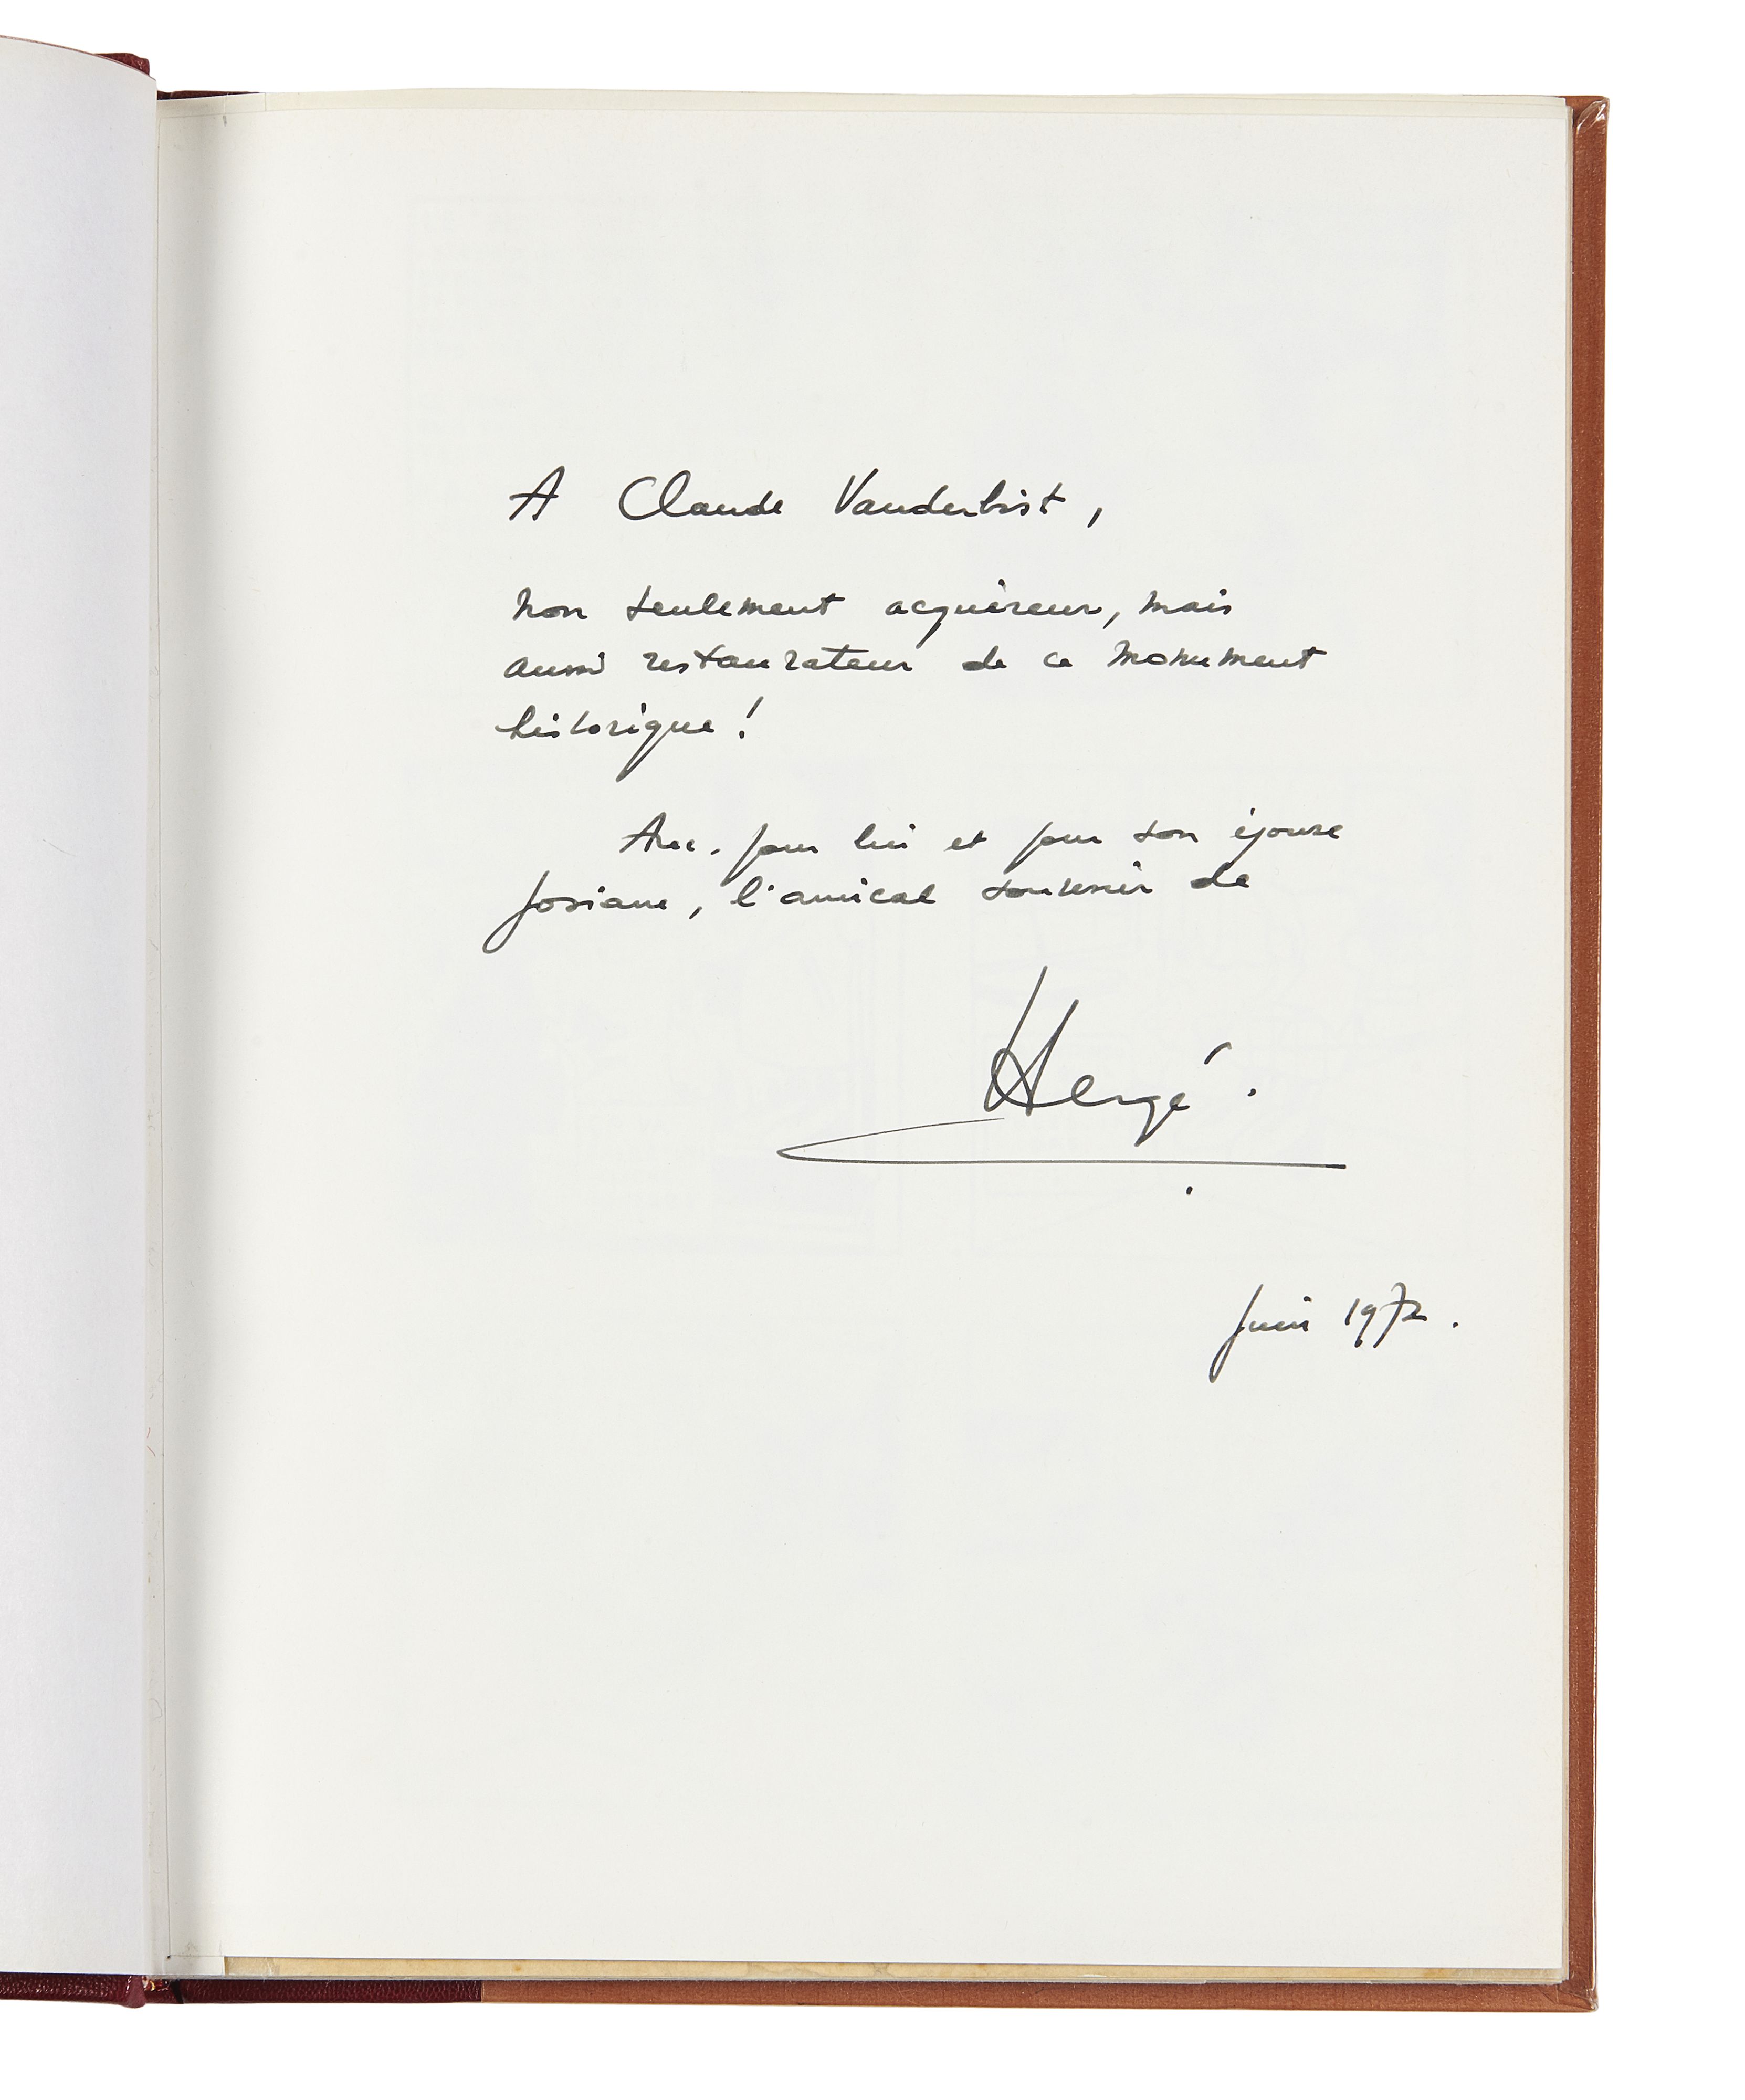 A Claude Vanderbist,
non seulement acquéreur, mais
aussi restaurateur de ce monument
historique !
Avec, pour lui et pour son épouse
Josiane, l'amical souvenir de
Hergé.
Juin 1972.